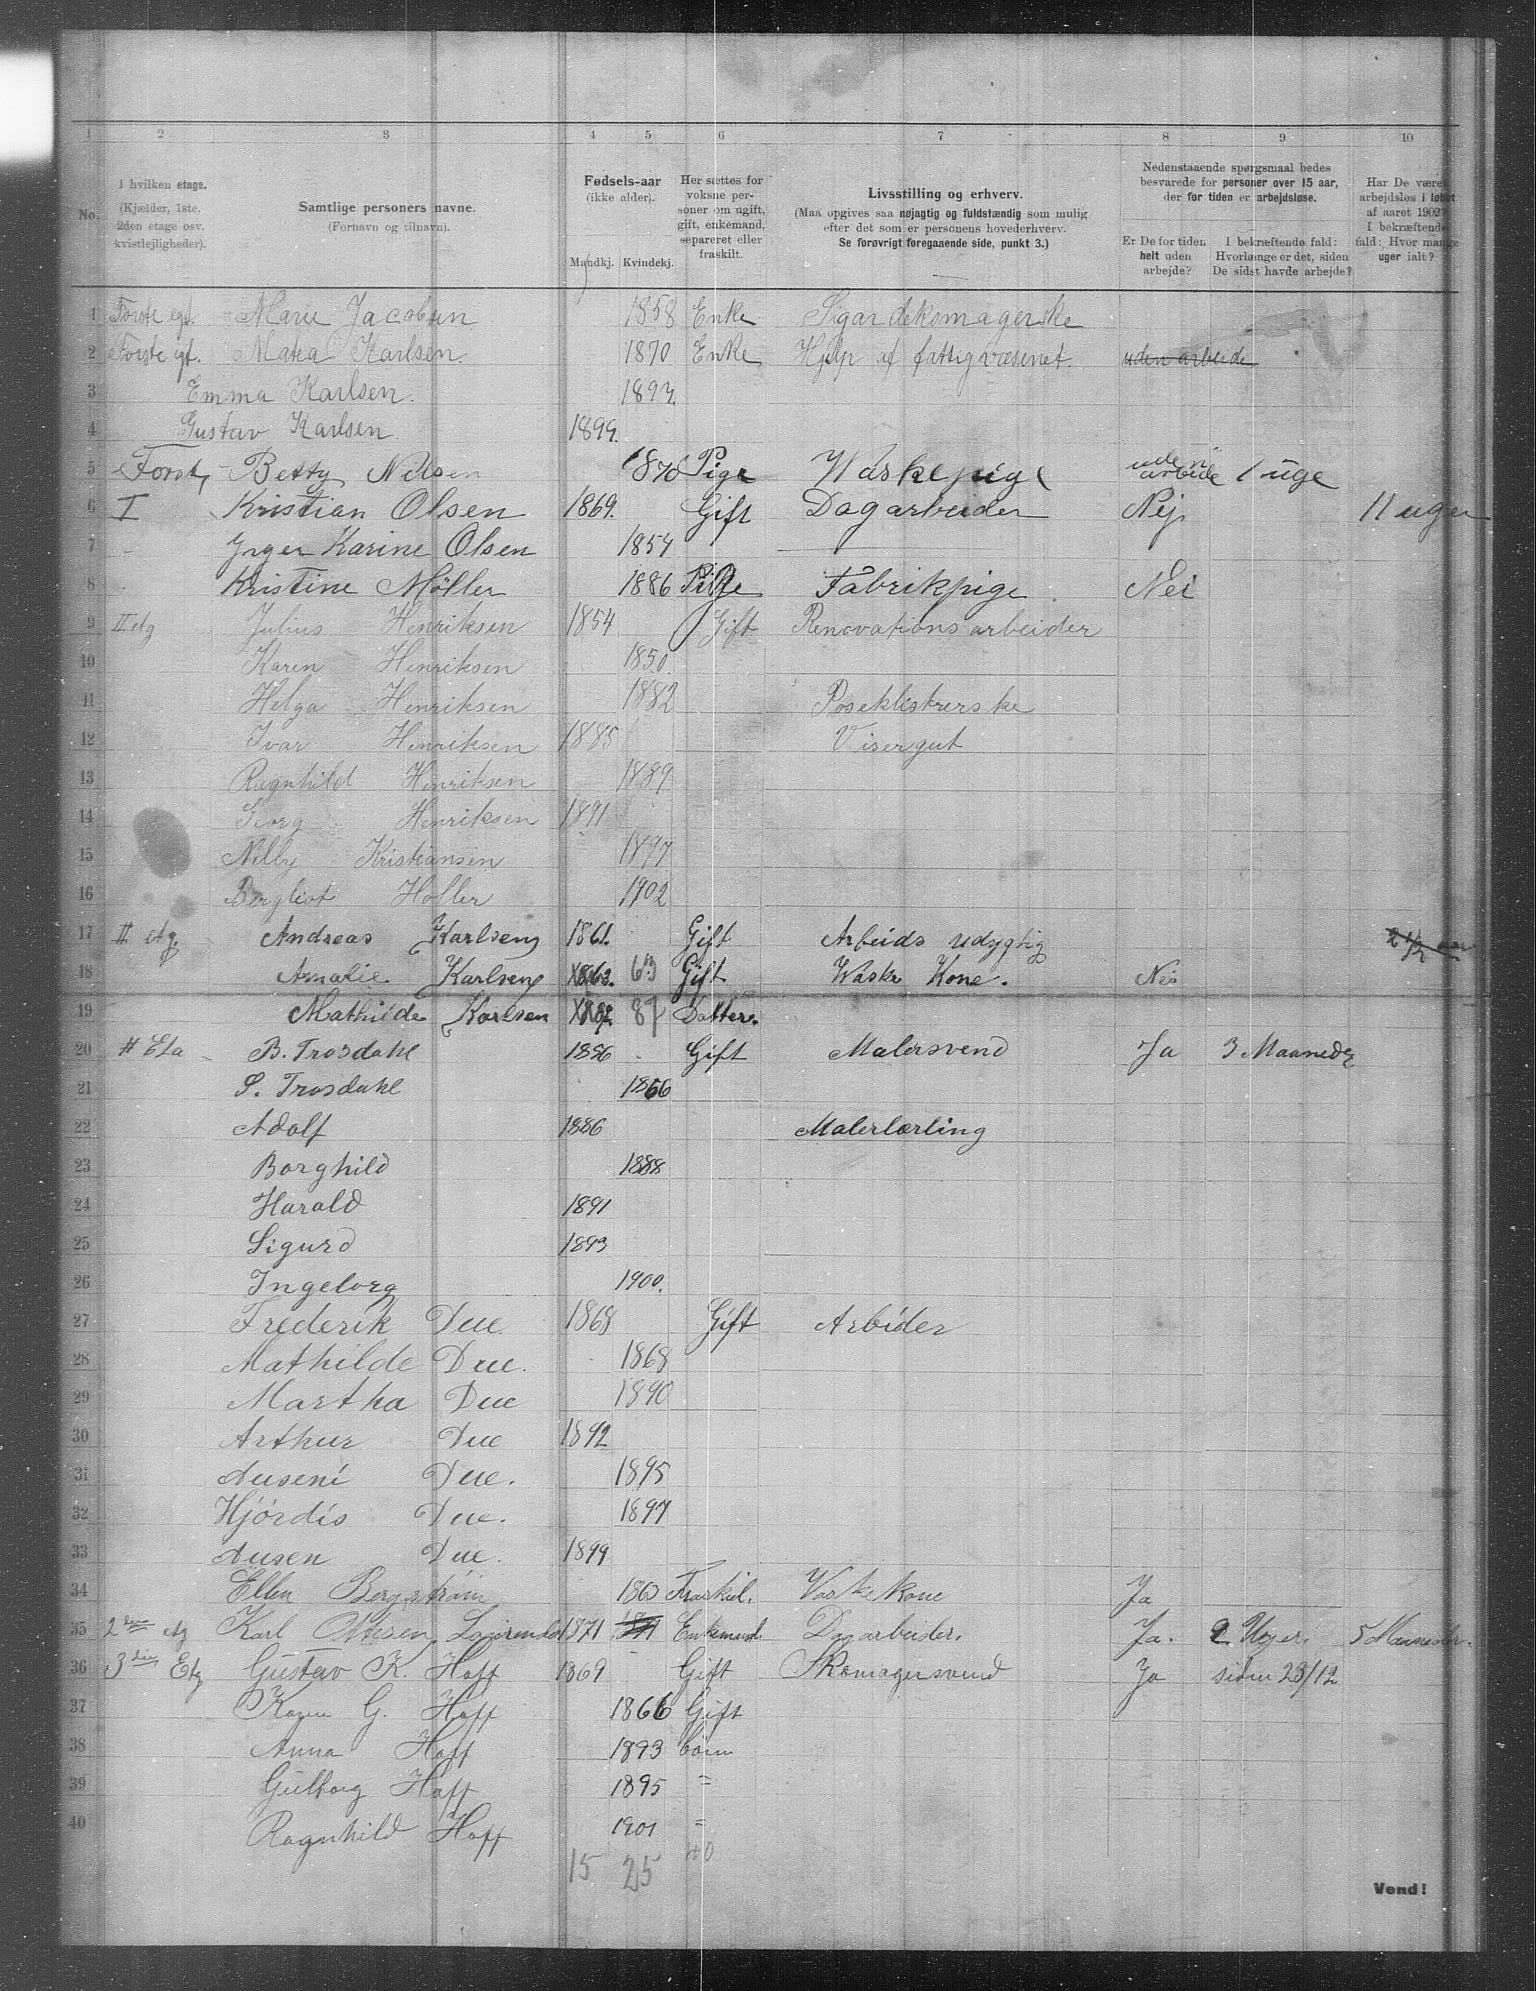 1 2 3 4 5 6 7 8 9 10
No.
I hvilken etage. (Kjælder, 1ste, 2den etage osv. kvistlejligheder).
Samtlige personers navne. (Fornavn og tilnavn).
Fødsels-aar (ikke alder). Mandkj. Kvindekj.
Her sættes for voksne personer om ugift, gift, enkemand, separeret eller fraskilt.
Livsstilling og erhverv. (Maa opgives saa nøjagtig og fuldstændig som mulig efter det som er personens hovederhverv. Se forøvrigt foregaaende side, punkt 3.)
Nedenstaaende spørgsmaal bedes besvarede for personer over 15 aar, der for tiden er arbejdsløse.
Er De for tiden helt uden arbejde?
I bekræftende fald: Hvorlænge er det, siden De sidst havde arbejde?
Har De været arbejdsløs i løbet af aaret 1902? I bekræftende fald: Hvor mange uger ialt?
1 Første egt. Marie Jacobsen 1858 Enke Sigardekomagerske
2 Første egt. Maka Karlsen 1870 Enke Hjelp af fattigvæsenet. uden arbeide
3 Emma Karlsen. 1893.
4 Gustav Karlsen 1899.
5 Forst, Betty Nilsen 1870 Pige Waskepige uden arbeide 1 uge
6 I Kristian Olsen 1869. Gift Dagarbeider Nej. 11 uger
7 Inger Karine Olsen 1854
8 Kristine Möller 1886 Pige Fabrikpige Nei
9 II etg Julius Henriksen 1854 Gift Renovations arbeider
10 Karen Henriksen 1850.
11 Helga Henriksen 1882 Poseklistrerske
12 Ivar Henriksen 1885 Visergut
13 Ragnhild Henriksen 1889
14 Georg Henriksen 1891
15 Nelly Kristiansen 1897
16 Bergliot Holler 1902
17 II etg. Andreas Karlsen 1861. Gift Arbeids udygtig 2 1/2 aar
18 Amalie Karlsen 1863. 63 Gift Waske Kone. Nei
19 Mathilde Karlsen 1887. 87 Datter.
20 II Eta B. Trosdahl 1856 Gift Malersvend Ja 3 Maaneder
21 S. Trosdahl 1866
22 Adolf 1886 Malerlærling
23 Borghild 1888
24 Harald 1891
25 Sigurd 1893
26 Ingeborg 1900.
27 Frederik Due. 1868 Gift Arbider
28 Mathilde Due. 1868
29 Martha Due 1890
30 Arthur Due 1892
31 Ausení Due. 1895
32 Hjördis Due. 1897
33 Ausen Due. 1899
34 Ellen Bergström 1863 Fraskil. Vaskekone Ja
35 2den etg Karl Ottesen 1871 Enkemand. Dagarbeider. Ja. 2 Uger. 5 Maaneder.
36 3die Etg Gustav K. Hoff 1869 Gift Skomagersvend Ja siden 23/12
37 Karen G. Hoff 1866 Gift
38 Anna Hoff 1893 børn
39 Gulborg Hoff 1895 =
40 Ragnhild Hoff 1901 =
15 25 40
Vend!